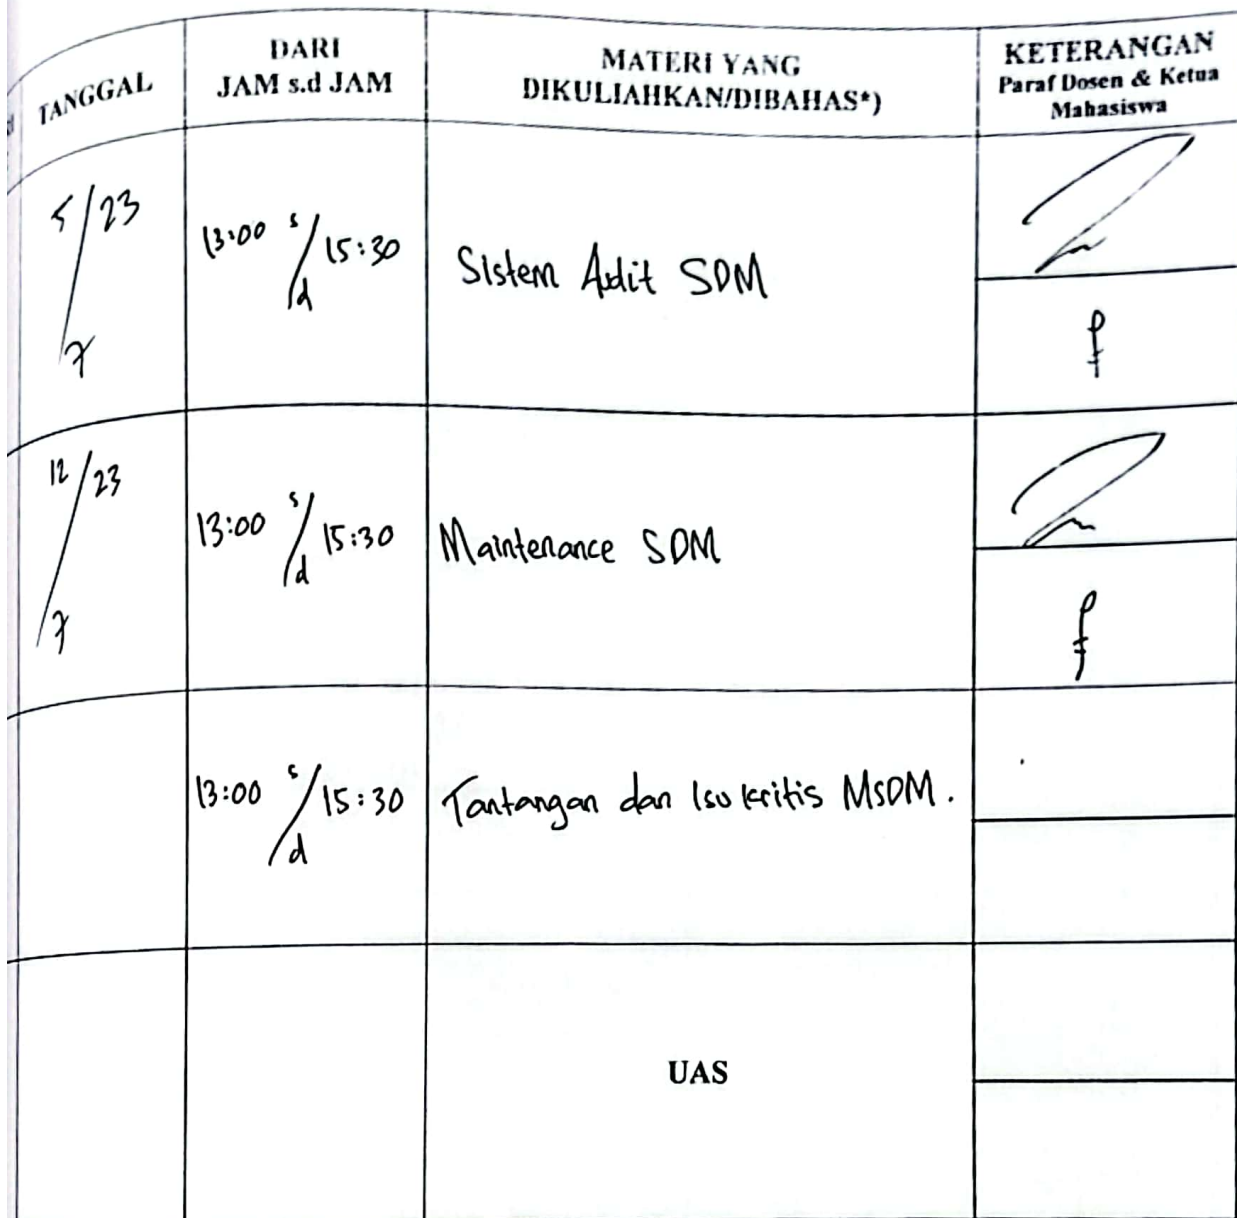 TANGGAL
DARI
JAM s.d JAM
MATERI YANG
DIKULIAHKAN/DIBAHAS*)
KETERANGAN
Paraf Dosen & Ketua
Mahasiswa
5/23
7
13:00 s/d 15:30
Sistem Audit SDM
12/23
7
13:00 s/d 15:30
Maintenance SDM
13:00 s/d 15:30
Tantangan dan Isu kritis MSDM.
UAS